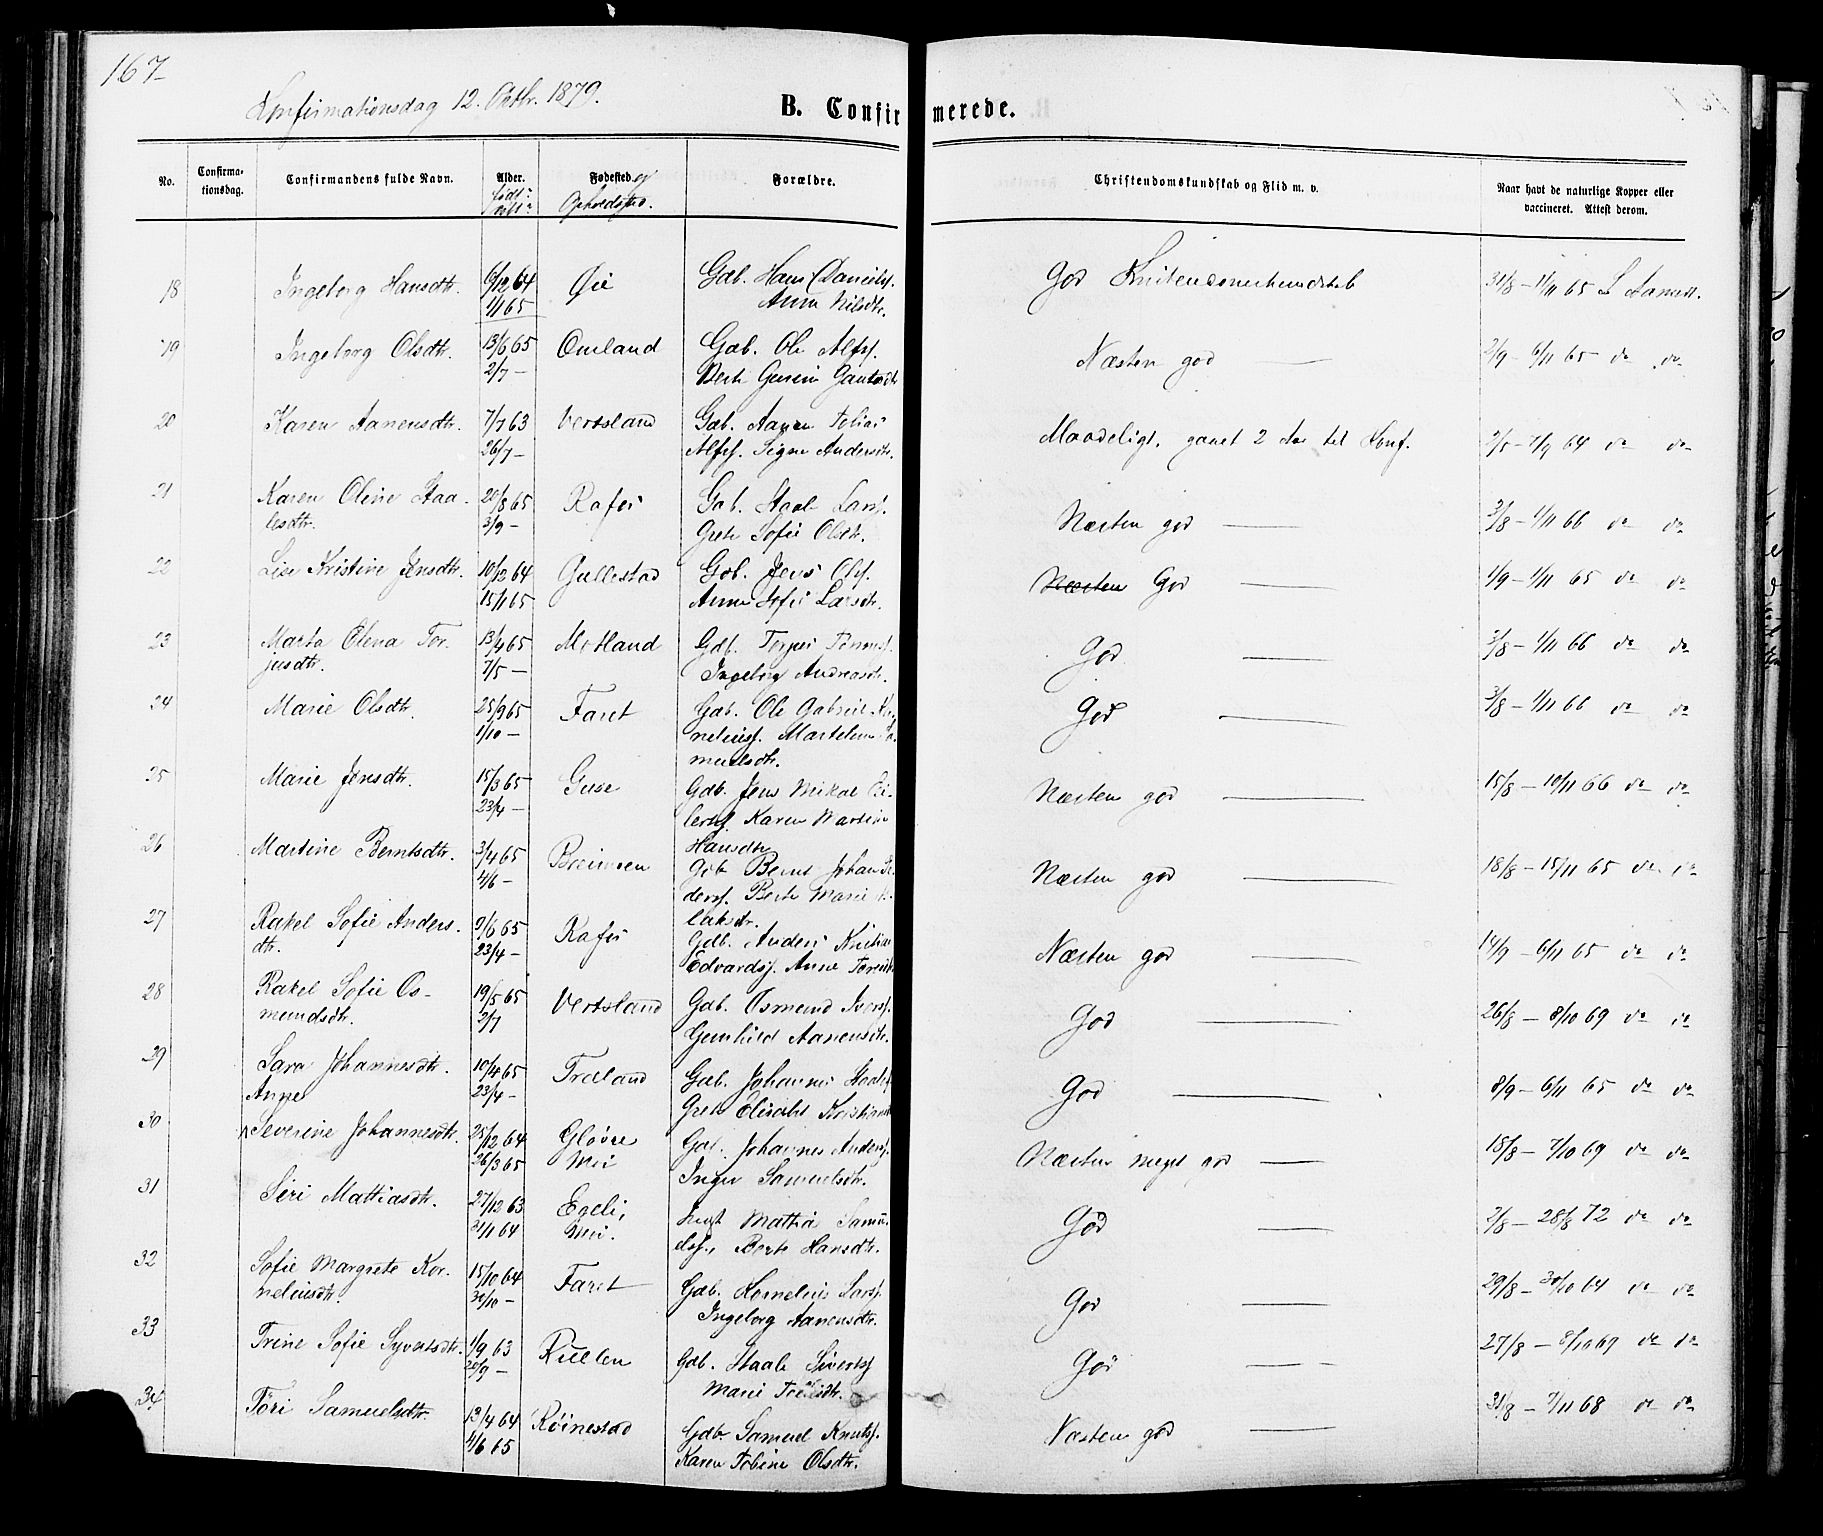 167
Konfirmationsdag 12. Octbr. 1879.
B. Confirmerede.
No.
Confirmationsdag.
Confirmandens fulde Navn.
Alder.
født:
Fødested og
Opholdssted.
Forældre.
Christendomskundskab og Flid m. v.
Naar havt de naturlige Kopper eller
vaccineret. Attest derom.
18 Ingeborg Hansdtr. 6/12 64 Øie Gdb. Hans Danielss. God Kristendomskundskab 31/8 – 1/11 65
1/1 65 Anna Nilsdtr.
19 Ingeborg Olsdtr. 13/6 65 Omland Gdb. Ole Alfss. Næsten god — 2/9 – 6/11 65 do do
2/7 –
20 Karen Aanensdtr. 7/7 63 Vertsland Gdb. Aanen Tobias Maadeligt, 2 til Konf. 64 do do
26/7 – Alfss. Signe Andersdtr.
21 Karen Oline Staa- 20/8 65 Rafos Gdb. Staale Larss. Næsten god — 3/8 – 1/11 66 do do
lesdtr. 3/9 – Grete Sofie Olsdtr.
22 Lise Kristine Jensdtr. 10/12 64 Gullestad Gdb. Jens Olss. Næsten God — 1/9 – 1/11 65 do do
15/1 65 Anne Sofie Larsdtr.
23 Marta Elena Tor- 13/4 65 Motland Gdb. Torjus God — 3/8 – 1/11 66 do do
jusdtr. 7/5 – Ingeborg Andreasdtr.
24 Marie Olsdtr. 25/9 65 Faret Gdb. Ole Gabriel Kor- God — 3/8 – 1/11 66 do do
1/10 – neliuss. Sa-
muelsdtr.
25 Marie Jensdtr. 15/3 65 Guse Gdb. Jens Mikal Ei- Næsten god — 15/8 – 10/11 66 do do
23/4 – lertss. Karen Martine
Hansdtr.
26 Martine Berntsdtr. 3/4 65 Breimoen Gdb. Bernt Johan Pe- Næsten god — 18/8 – 15/11 65 do do
4/6 – derss. Berte Marie
27 Rakel Sofie Anders- 9/6 65 Rafos Gdb. Anders Kristian Næsten god — 14/9 – 6/11 65 do do
dtr. 23/4 – Edvardss. Anne
28 Rakel Sofie Os- 19/5 65 Vertsland Gdb. Osmund Iverss. God — 26/8 – 8/10 69 do do
mundsdtr. 2/7 Gunhild Aanensdtr.
29 Sara Johannesdtr. 10/4 65 Træland Gdb. Johannes Staaless. God — 8/9 – 6/11 65 do do
23/4 – Grete Elisabet
Anne
30 Severine Johannesdtr. 25/12 64 Gløvre Gdb. Johannes Anderss. Næsten meget god — 18/8 – 7/10 69 do do
26/3 65 Moi Inger Samuelsdtr.
31 Siri Mattiasdtr. 27/12 63 Egeli, Mattias Samu- God — 2/8 – 28/8 72 do do
64 Moi. elss., Berte Hansdtr.
32 Sofie Margrete Kor- 15/10 64 Faret Gdb. Kornelius Larss. God — 29/8 – 30/10 64 do do
neliusdtr. 30/10 – Ingeborg Aanensdtr.
33 Trine Sofie Syvertsdtr. 1/9 63 Rullen Gdb. Staale Sivertss. God — 27/8 – 8/10 69 do do
20/9 – Marie
34 Tori Samuelsdtr. 13/4 64 Röinestad Gdb. Samuel Knutss. Næsten god — 31/8 – 7/11 68 do do
4/6 65 Karen Tobine Olsdtr.